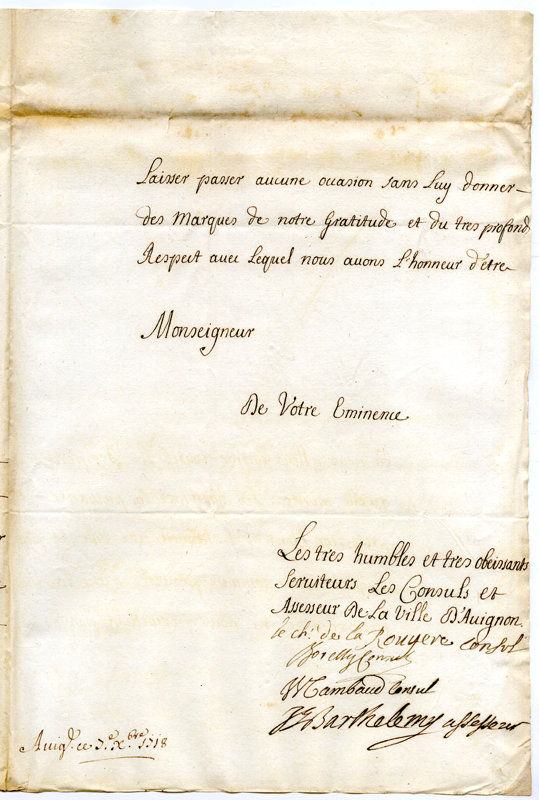 Laisser passer aucune occasion sans Luy donner
des Marques de notre Gratitude et du tres profond
Respect auec Lequel nous auons L'honneur d'être
Monseigneur
De Votre Eminence
Les tres humbles et tres obeissants
Seruiteurs Les Consuls et
Assesseur De La Ville D'Auignon
le ch.r de la Rouyere consul
Consul
Consul
Barthelemy assesseur
Auig.n ce